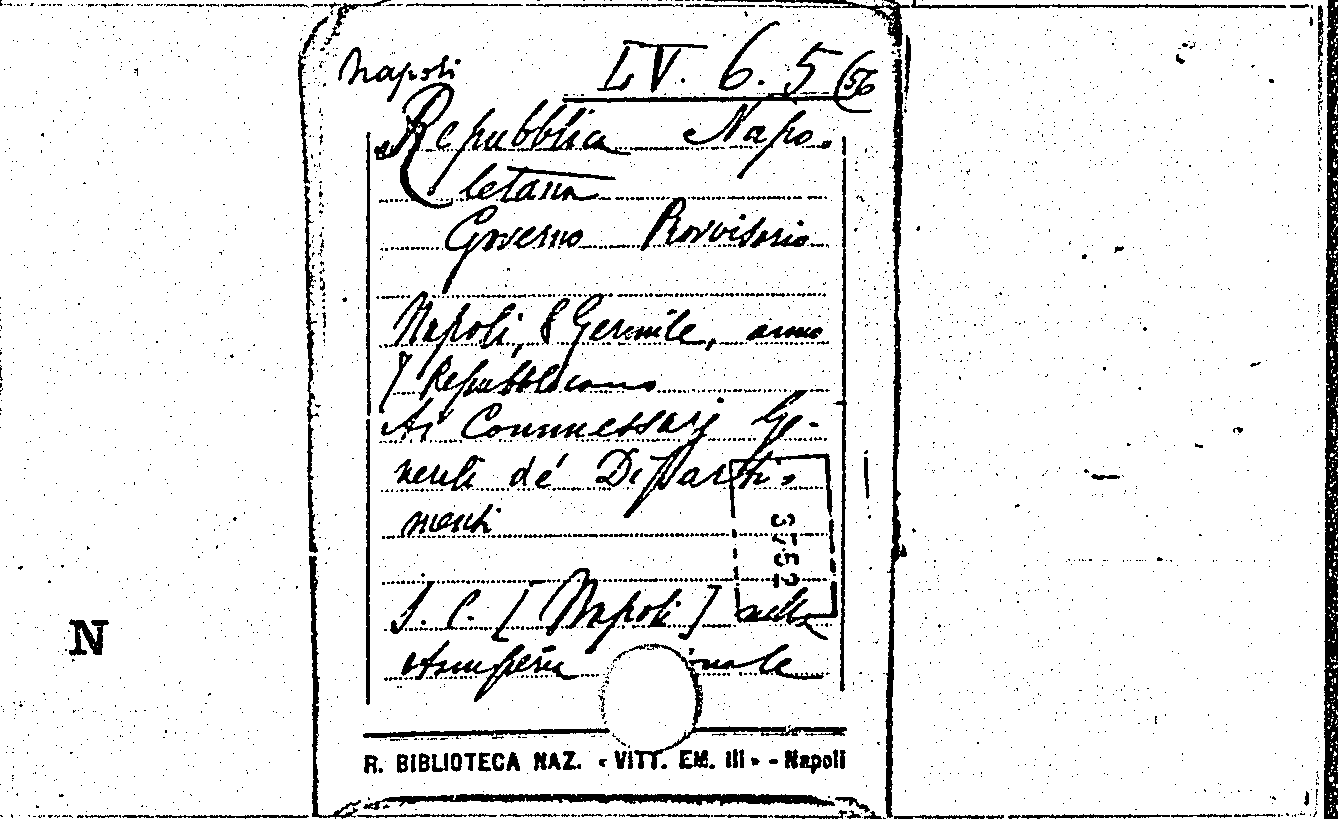 Napoli LV. 6. 5 (56
Repubblica Napo-
letana
Governo Provvisorio
Napoli, 8 Germile, anno
7 Repubblicano
Ai Commessarj Ge-
nerali de' Diparti-
menti
3752
S. C. [Napoli] nella
Stamperia nale
R. BIBLIOTECA NAZ. « VITT. EM. III » - Napoli
N